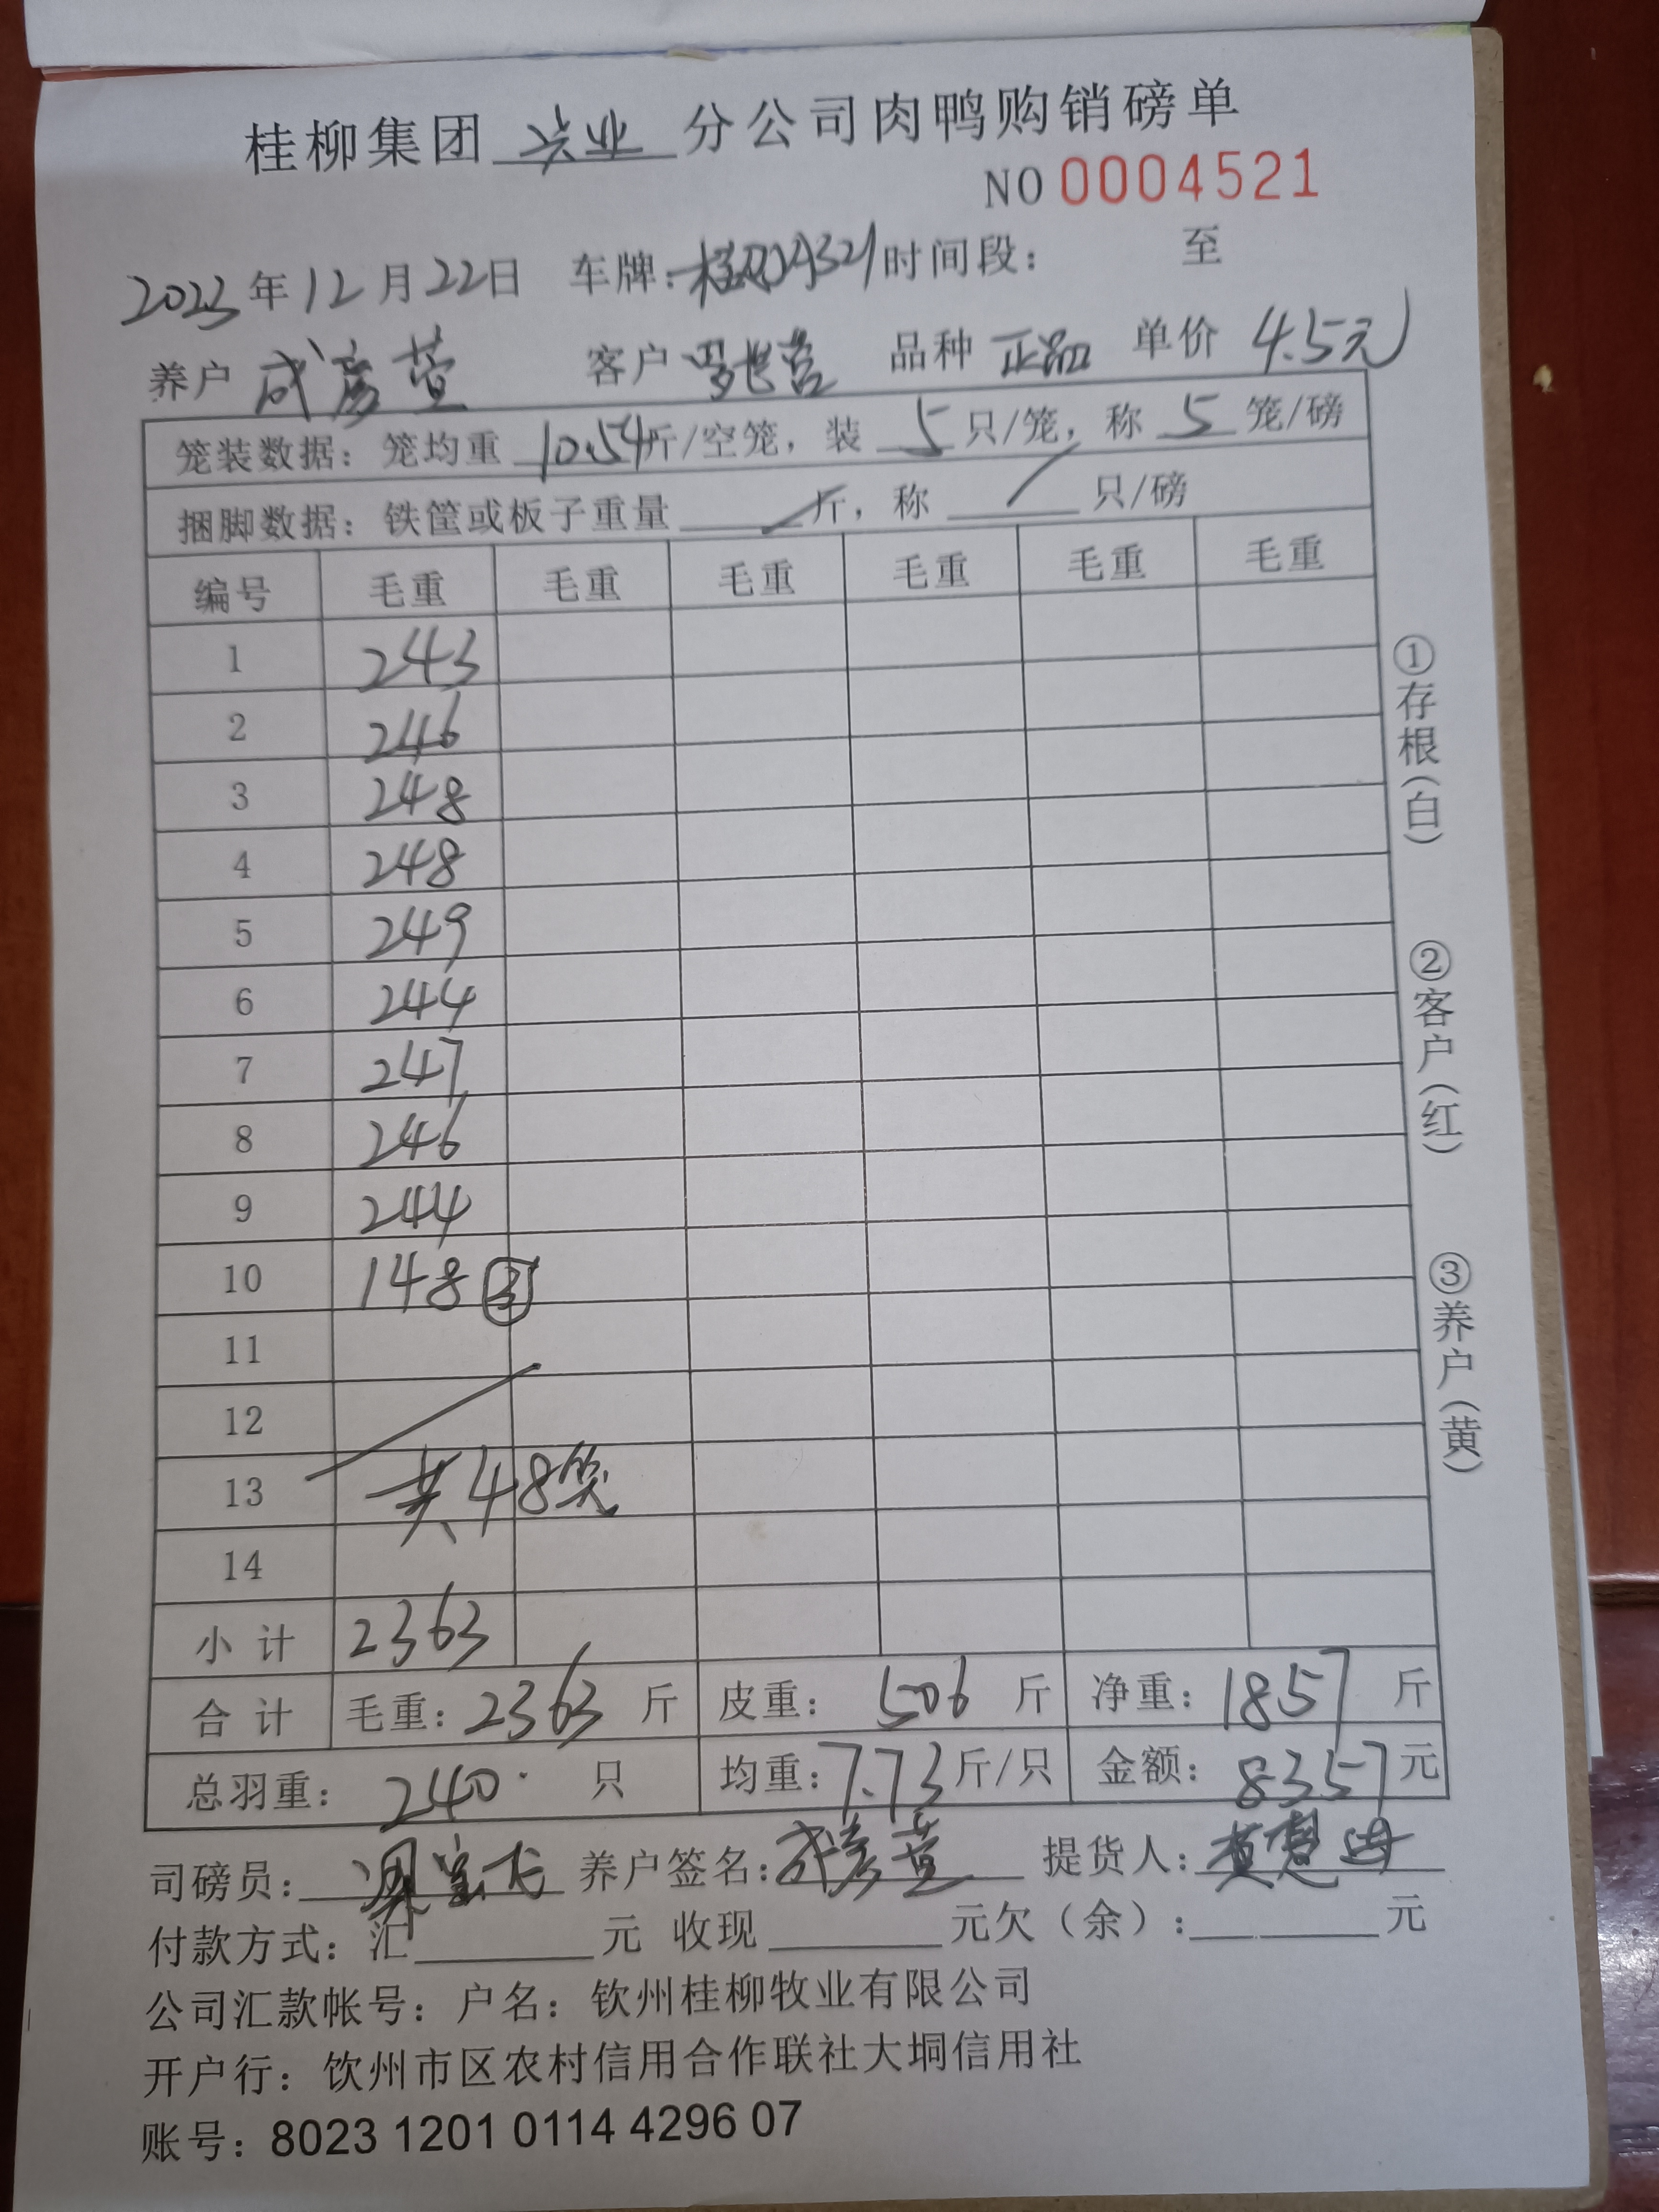 桂柳集团 兴业 分公司肉鸭购销磅单
NO 0004521
2023年12月22日 车牌: 时间段: 至
养户 成彦萱 客户 品种 正品 单价 4.5元
笼装数据: 笼均重 10.54斤/空笼, 装 5 只/笼, 称 5 笼/磅
捆脚数据: 铁筐或板子重量 / 斤, 称 / 只/磅
编号 毛重 毛重 毛重 毛重 毛重 毛重
1 243
2 246
3 248
4 248
5 249
6 244
7 247
8 246
9 244
10 148 ③
11
12
13 共48笼
14
小计 2363
合计 毛重: 2363 斤 皮重: 506 斤 净重: 1857 斤
总羽重: 240 只 均重: 7.73斤/只 金额: 8357元
①存根(白) ②客户(红) ③养户(黄)
司磅员: 养户签名: 成彦萱 提货人:
付款方式: 汇 元 收现 元欠(余): 元
公司汇款帐号: 户名: 钦州桂柳牧业有限公司
开户行: 钦州市区农村信用合作联社大垌信用社
账号: 8023 1201 0114 4296 07